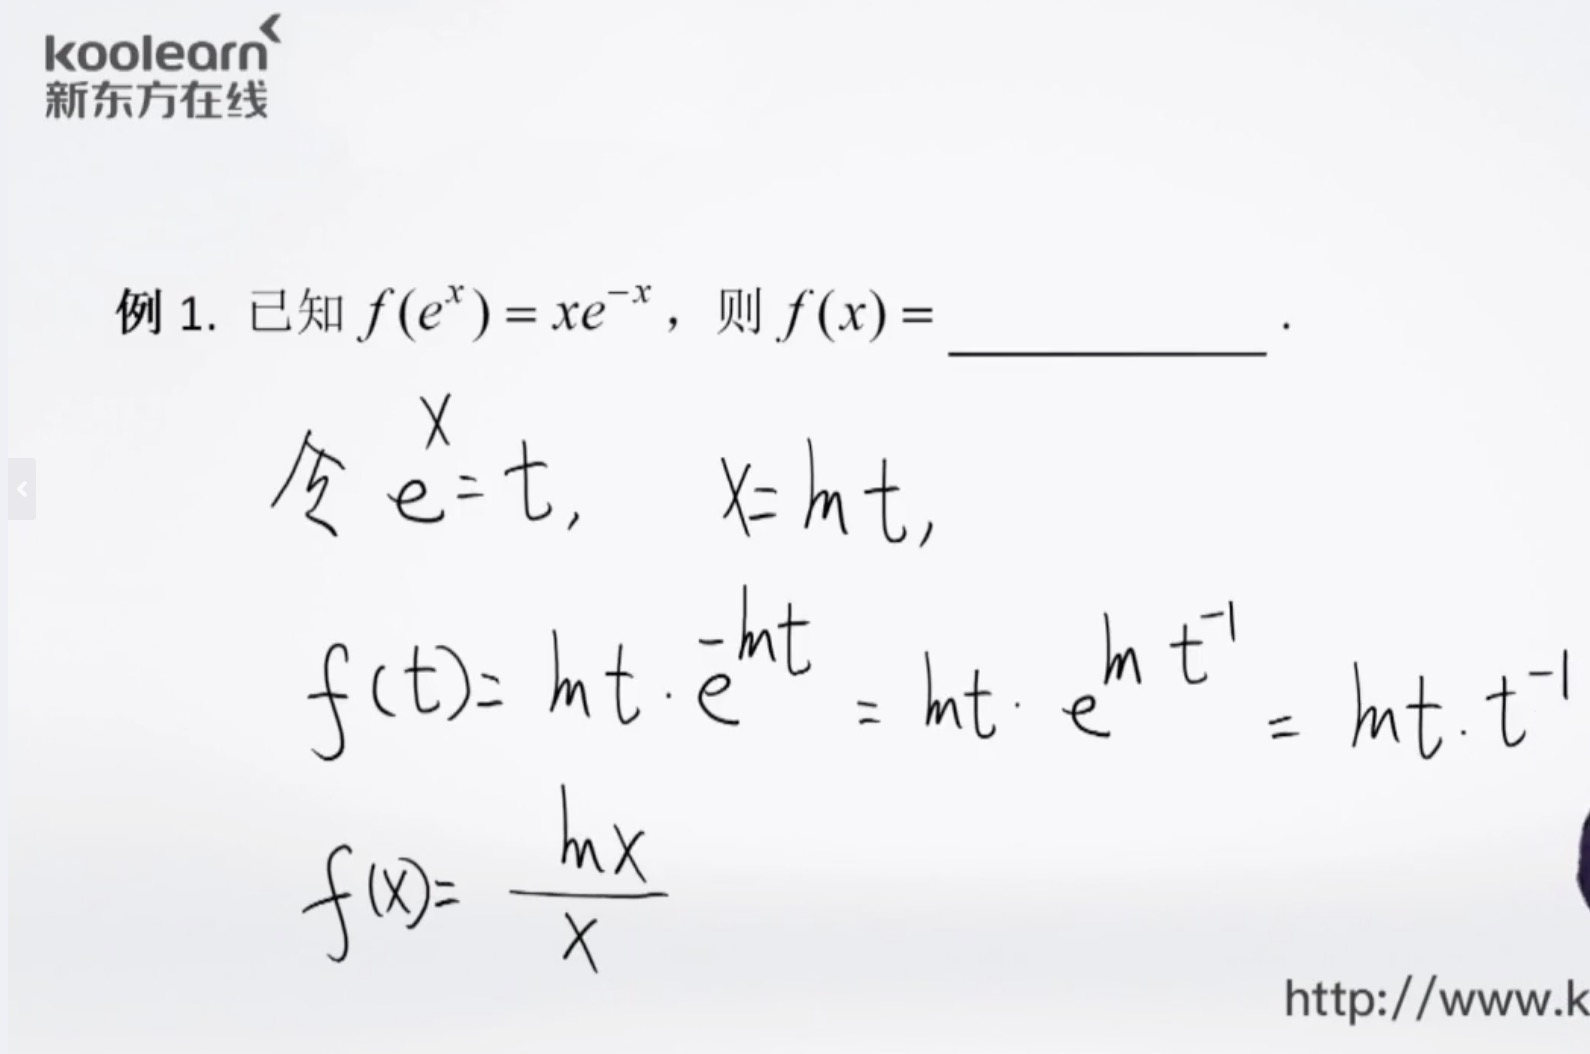 koolearn
新东方在线
例 1. 已知 f(eˣ) = xe⁻ˣ，则 f(x) = ________.
令 eˣ = t, x = ln t,
f(t) = ln t · e^(-ln t) = ln t · e^(ln t⁻¹) = ln t · t⁻¹
f(x) = ln x / x
http://www.k